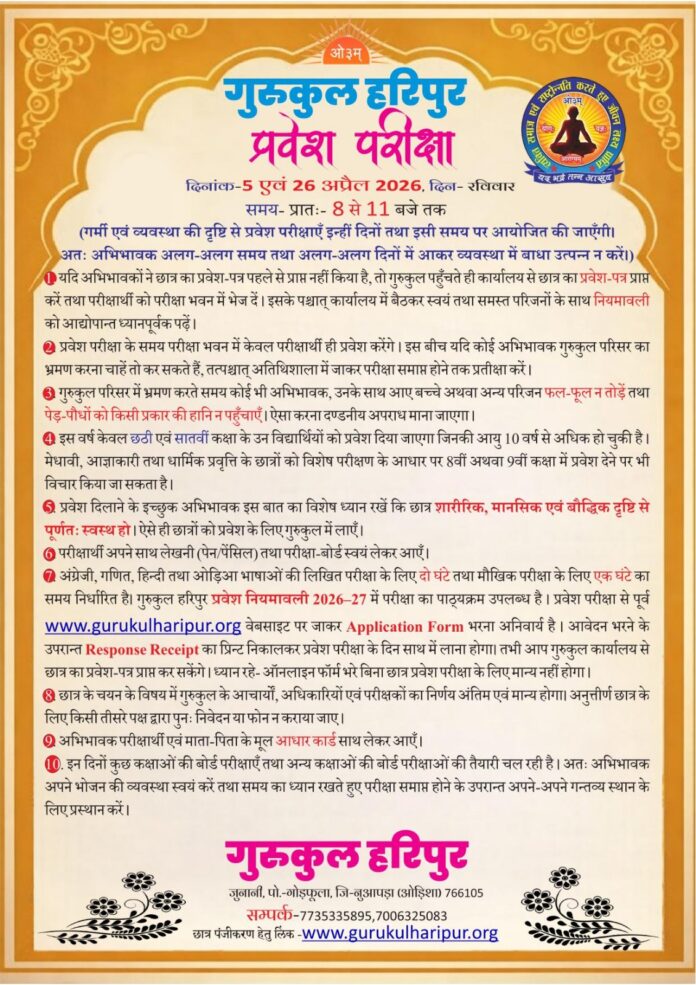 ओ३म्
गुरुकुल हरिपुर
प्रवेश परीक्षा
दिनांक-5 एवं 26 अप्रैल 2026, दिन- रविवार
समय- प्रातः- 8 से 11 बजे तक
(गर्मी एवं व्यवस्था की दृष्टि से प्रवेश परीक्षाएँ इन्हीं दिनों तथा इसी समय पर आयोजित की जाएँगी।
अतः अभिभावक अलग-अलग समय तथा अलग-अलग दिनों में आकर व्यवस्था में बाधा उत्पन्न न करें।)
1 यदि अभिभावकों ने छात्र का प्रवेश-पत्र पहले से प्राप्त नहीं किया है, तो गुरुकुल पहुँचते ही कार्यालय से छात्र का प्रवेश-पत्र प्राप्त
करें तथा परीक्षार्थी को परीक्षा भवन में भेज दें। इसके पश्चात् कार्यालय में बैठकर स्वयं तथा समस्त परिजनों के साथ नियमावली
को आद्योपान्त ध्यानपूर्वक पढ़ें।
2 प्रवेश परीक्षा के समय परीक्षा भवन में केवल परीक्षार्थी ही प्रवेश करेंगे। इस बीच यदि कोई अभिभावक गुरुकुल परिसर का
भ्रमण करना चाहें तो कर सकते हैं, तत्पश्चात् अतिथिशाला में जाकर परीक्षा समाप्त होने तक प्रतीक्षा करें।
3 गुरुकुल परिसर में भ्रमण करते समय कोई भी अभिभावक, उनके साथ आए बच्चे अथवा अन्य परिजन फल-फूल न तोड़ें तथा
पेड़-पौधों को किसी प्रकार की हानि न पहुँचाएँ। ऐसा करना दण्डनीय अपराध माना जाएगा।
4 इस वर्ष केवल छठी एवं सातवीं कक्षा के उन विद्यार्थियों को प्रवेश दिया जाएगा जिनकी आयु 10 वर्ष से अधिक हो चुकी है।
मेधावी, आज्ञाकारी तथा धार्मिक प्रवृत्ति के छात्रों को विशेष परीक्षण के आधार पर 8वीं अथवा 9वीं कक्षा में प्रवेश देने पर भी
विचार किया जा सकता है।
5 प्रवेश दिलाने के इच्छुक अभिभावक इस बात का विशेष ध्यान रखें कि छात्र शारीरिक, मानसिक एवं बौद्धिक दृष्टि से
पूर्णतः स्वस्थ हो। ऐसे ही छात्रों को प्रवेश के लिए गुरुकुल में लाएँ।
6 परीक्षार्थी अपने साथ लेखनी (पेन/पेंसिल) तथा परीक्षा-बोर्ड स्वयं लेकर आएँ।
7 अंग्रेजी, गणित, हिन्दी तथा ओड़िआ भाषाओं की लिखित परीक्षा के लिए दो घंटे तथा मौखिक परीक्षा के लिए एक घंटे का
समय निर्धारित है। गुरुकुल हरिपुर प्रवेश नियमावली 2026–27 में परीक्षा का पाठ्यक्रम उपलब्ध है। प्रवेश परीक्षा से पूर्व
www.gurukulharipur.org वेबसाइट पर जाकर Application Form भरना अनिवार्य है। आवेदन भरने के
उपरान्त Response Receipt का प्रिन्ट निकालकर प्रवेश परीक्षा के दिन साथ में लाना होगा। तभी आप गुरुकुल कार्यालय से
छात्र का प्रवेश-पत्र प्राप्त कर सकेंगे। ध्यान रहे- ऑनलाइन फॉर्म भरे बिना छात्र प्रवेश परीक्षा के लिए मान्य नहीं होगा।
8 छात्र के चयन के विषय में गुरुकुल के आचार्यों, अधिकारियों एवं परीक्षकों का निर्णय अंतिम एवं मान्य होगा। अनुत्तीर्ण छात्र के
लिए किसी तीसरे पक्ष द्वारा पुनः निवेदन या फोन न कराया जाए।
9 अभिभावक परीक्षार्थी एवं माता-पिता के मूल आधार कार्ड साथ लेकर आएँ।
10. इन दिनों कुछ कक्षाओं की बोर्ड परीक्षाएँ तथा अन्य कक्षाओं की बोर्ड परीक्षाओं की तैयारी चल रही है। अतः अभिभावक
अपने भोजन की व्यवस्था स्वयं करें तथा समय का ध्यान रखते हुए परीक्षा समाप्त होने के उपरान्त अपने-अपने गन्तव्य स्थान के
लिए प्रस्थान करें।
गुरुकुल हरिपुर
जुनानी, पो.-गोड़फूला, जि-नुआपड़ा (ओड़िशा) 766105
सम्पर्क-7735335895,7006325083
छात्र पंजीकरण हेतु लिंक -www.gurukulharipur.org